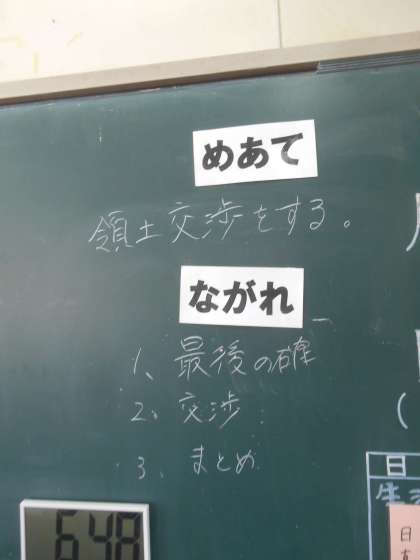 めあて
領土交渉をする。
ながれ
1、最後の確
2、交渉
3、まとめ
日
648